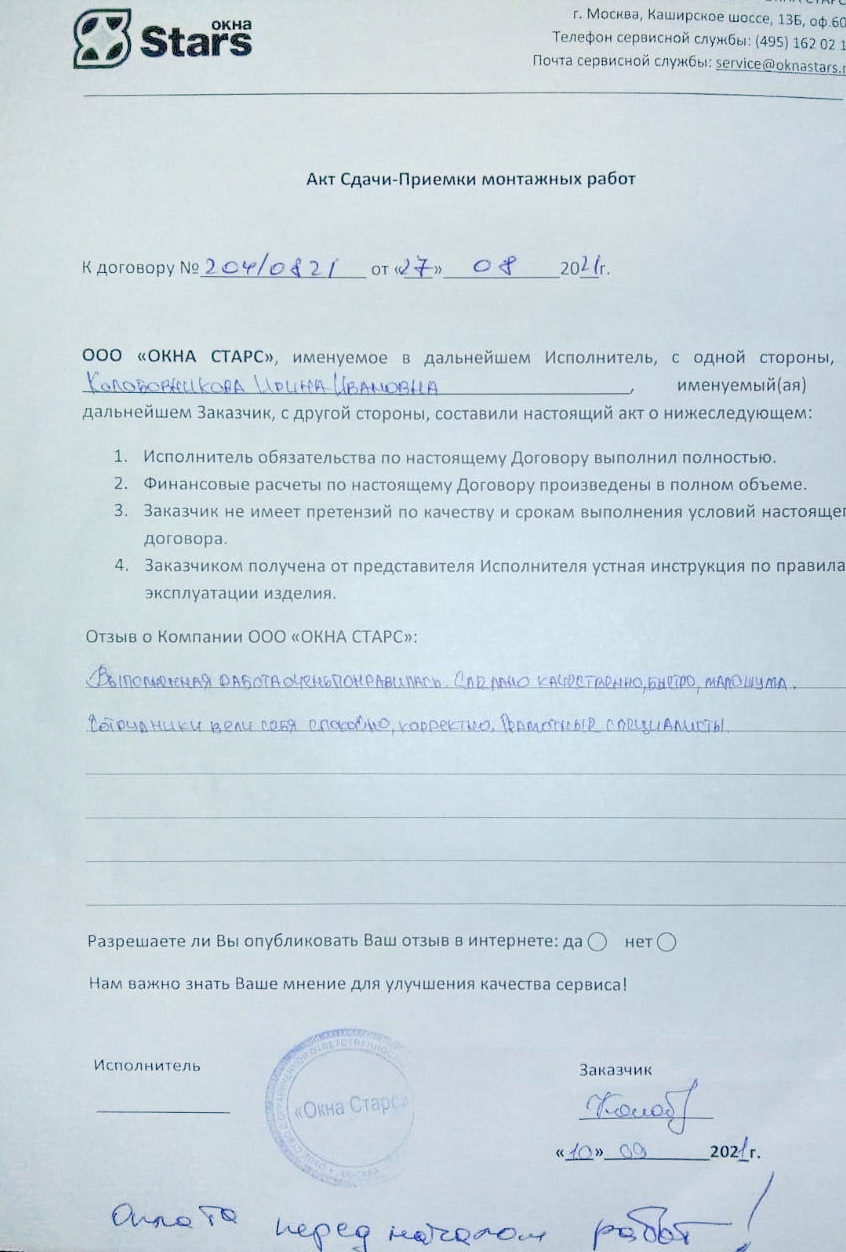 окна
Stars
г. Москва, Каширское шоссе, 13Б, оф.60
Телефон сервисной службы: (495) 162 02 1
Почта сервисной службы: service@oknastars.r
Акт Сдачи-Приемки монтажных работ
К договору № 204/0821 от «27» 08 2021г.
ООО «ОКНА СТАРС», именуемое в дальнейшем Исполнитель, с одной стороны,
Колобовникова Ирина Ивановна, именуемый(ая)
дальнейшем Заказчик, с другой стороны, составили настоящий акт о нижеследующем:
1. Исполнитель обязательства по настоящему Договору выполнил полностью.
2. Финансовые расчеты по настоящему Договору произведены в полном объеме.
3. Заказчик не имеет претензий по качеству и срокам выполнения условий настоящег
договора.
4. Заказчиком получена от представителя Исполнителя устная инструкция по правила
эксплуатации изделия.
Отзыв о Компании ООО «ОКНА СТАРС»:
Выполненная работа очень понравилась. Сделано качественно, быстро, мало шума.
Сотрудники вели себя спокойно, корректно. Грамотные специалисты.
Разрешаете ли Вы опубликовать Ваш отзыв в интернете: да нет
Нам важно знать Ваше мнение для улучшения качества сервиса!
Исполнитель
«Окна Старс»
Заказчик
«10» 09 2021г.
Оплата перед началом работ!